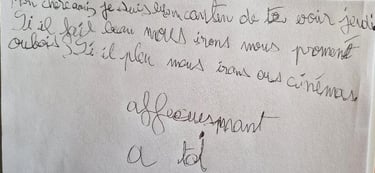 Mon cher amis je suis bien conten de te voir jeudi
Si il fait beau nous irons nous promené
oubois Si il pleu nous irons ous cinémas
affecuesmant
a toi